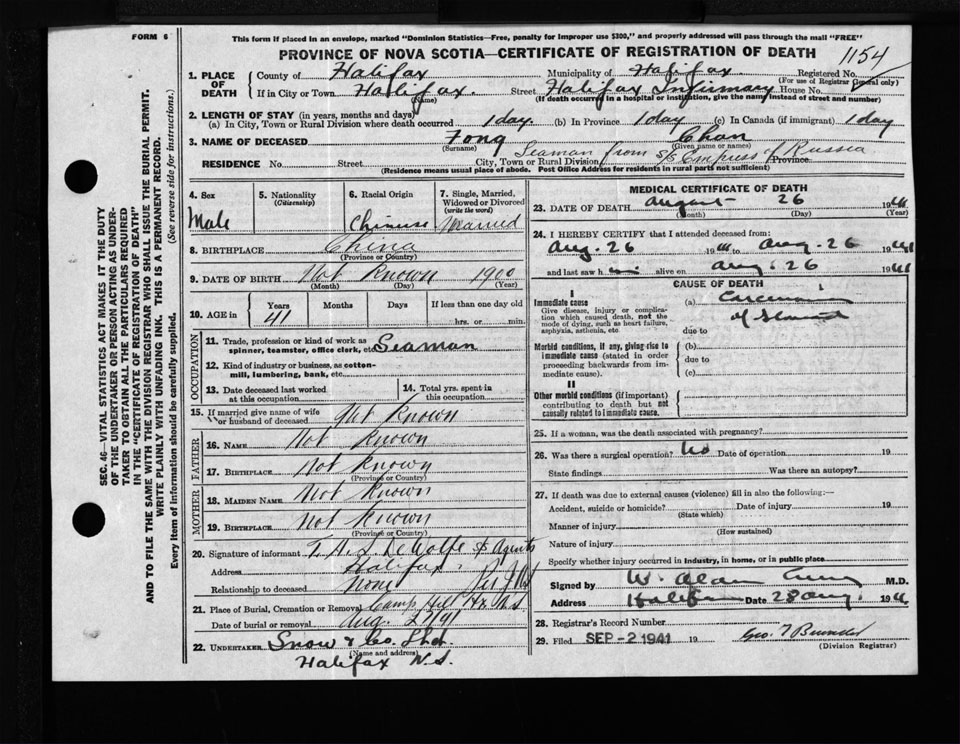 FORM 6
This form if placed in an envelope, marked "Dominion Statistics—Free, penalty for improper use $300," and properly addressed will pass through the mail "FREE"
PROVINCE OF NOVA SCOTIA—CERTIFICATE OF REGISTRATION OF DEATH
1154
1. PLACE OF DEATH
County of Halifax Municipality of Halifax Registered No.
(For use of Registrar General only)
If in City or Town Halifax Street Halifax Infirmary House No.
(Name) (If death occurred in a hospital or institution, give the name instead of street and number)
2. LENGTH OF STAY (in years, months and days)
(a) In City, Town or Rural Division where death occurred 1 day (b) In Province 1 day (c) In Canada (if immigrant) 1 day
3. NAME OF DECEASED Fong Chan
(Surname) (Given name or names)
Seaman from S/S Empress of Russia
RESIDENCE No. Street City, Town or Rural Division Province
(Residence means usual place of abode. Post Office Address for residents in rural parts not sufficient)
4. Sex
Male
5. Nationality
(Citizenship)
6. Racial Origin
Chinese
7. Single, Married, Widowed or Divorced
(write the word)
Married
8. BIRTHPLACE China
(Province or Country)
9. DATE OF BIRTH Not Known 1900
(Month) (Day) (Year)
10. AGE in
Years Months Days If less than one day
41 hrs. or min.
OCCUPATION
11. Trade, profession or kind of work as spinner, teamster, office clerk, etc. Seaman
12. Kind of industry or business, as cotton-mill, lumbering, bank, etc.
13. Date deceased last worked at this occupation
14. Total yrs. spent in this occupation
15. If married give name of wife or husband of deceased Not Known
FATHER
16. NAME Not Known
17. BIRTHPLACE Not Known
(Province or Country)
MOTHER
18. MAIDEN NAME Not Known
19. BIRTHPLACE Not Known
(Province or Country)
20. Signature of informant T. A. S. DeWolfe S/S Agents
Address Halifax
Relationship to deceased None
21. Place of Burial, Cremation or Removal Camp Hill Hx N.S
Date of burial or removal Aug. 27/41
22. UNDERTAKER Snow & Co. Ltd.
(Name and address)
Halifax N.S.
MEDICAL CERTIFICATE OF DEATH
23. DATE OF DEATH August 26 1941
(Month) (Day) (Year)
24. I HEREBY CERTIFY that I attended deceased from:
Aug. 26 1941 to Aug. 26 1941
and last saw him alive on Aug. 26 1941
CAUSE OF DEATH
I
Immediate cause
Give disease, injury or complication which caused death, not the mode of dying, such as heart failure, asphyxia, asthenia, etc.
(a) Carcinoma
of
due to
Morbid conditions, if any, giving rise to immediate cause (stated in order proceeding backwards from immediate cause).
(b)
due to
(c)
II
Other morbid conditions (if important) contributing to death but not causally related to immediate cause.
25. If a woman, was the death associated with pregnancy?
26. Was there a surgical operation? No Date of operation 19
State findings Was there an autopsy?
27. If death was due to external causes (violence) fill in also the following:—
Accident, suicide or homicide? Date of injury 19
(State which)
Manner of injury
(How sustained)
Nature of injury
Specify whether injury occurred in industry, in home, or in public place
Signed by W. Alan Curry M.D.
Address Halifax Date 28 Aug. 1941
28. Registrar's Record Number
29. Filed SEP - 2 1941 19
(Division Registrar)
SEC. 46—VITAL STATISTICS ACT MAKES IT THE DUTY
OF THE UNDERTAKER OR PERSON ACTING AS UNDER-
TAKER TO OBTAIN ALL THE PARTICULARS REQUIRED
IN THE "CERTIFICATE OF REGISTRATION OF DEATH"
AND TO FILE THE SAME WITH THE DIVISION REGISTRAR WHO SHALL ISSUE THE BURIAL PERMIT.
WRITE PLAINLY WITH UNFADING INK. THIS IS A PERMANENT RECORD.
Every item of information should be carefully supplied. (See reverse side for instructions.)